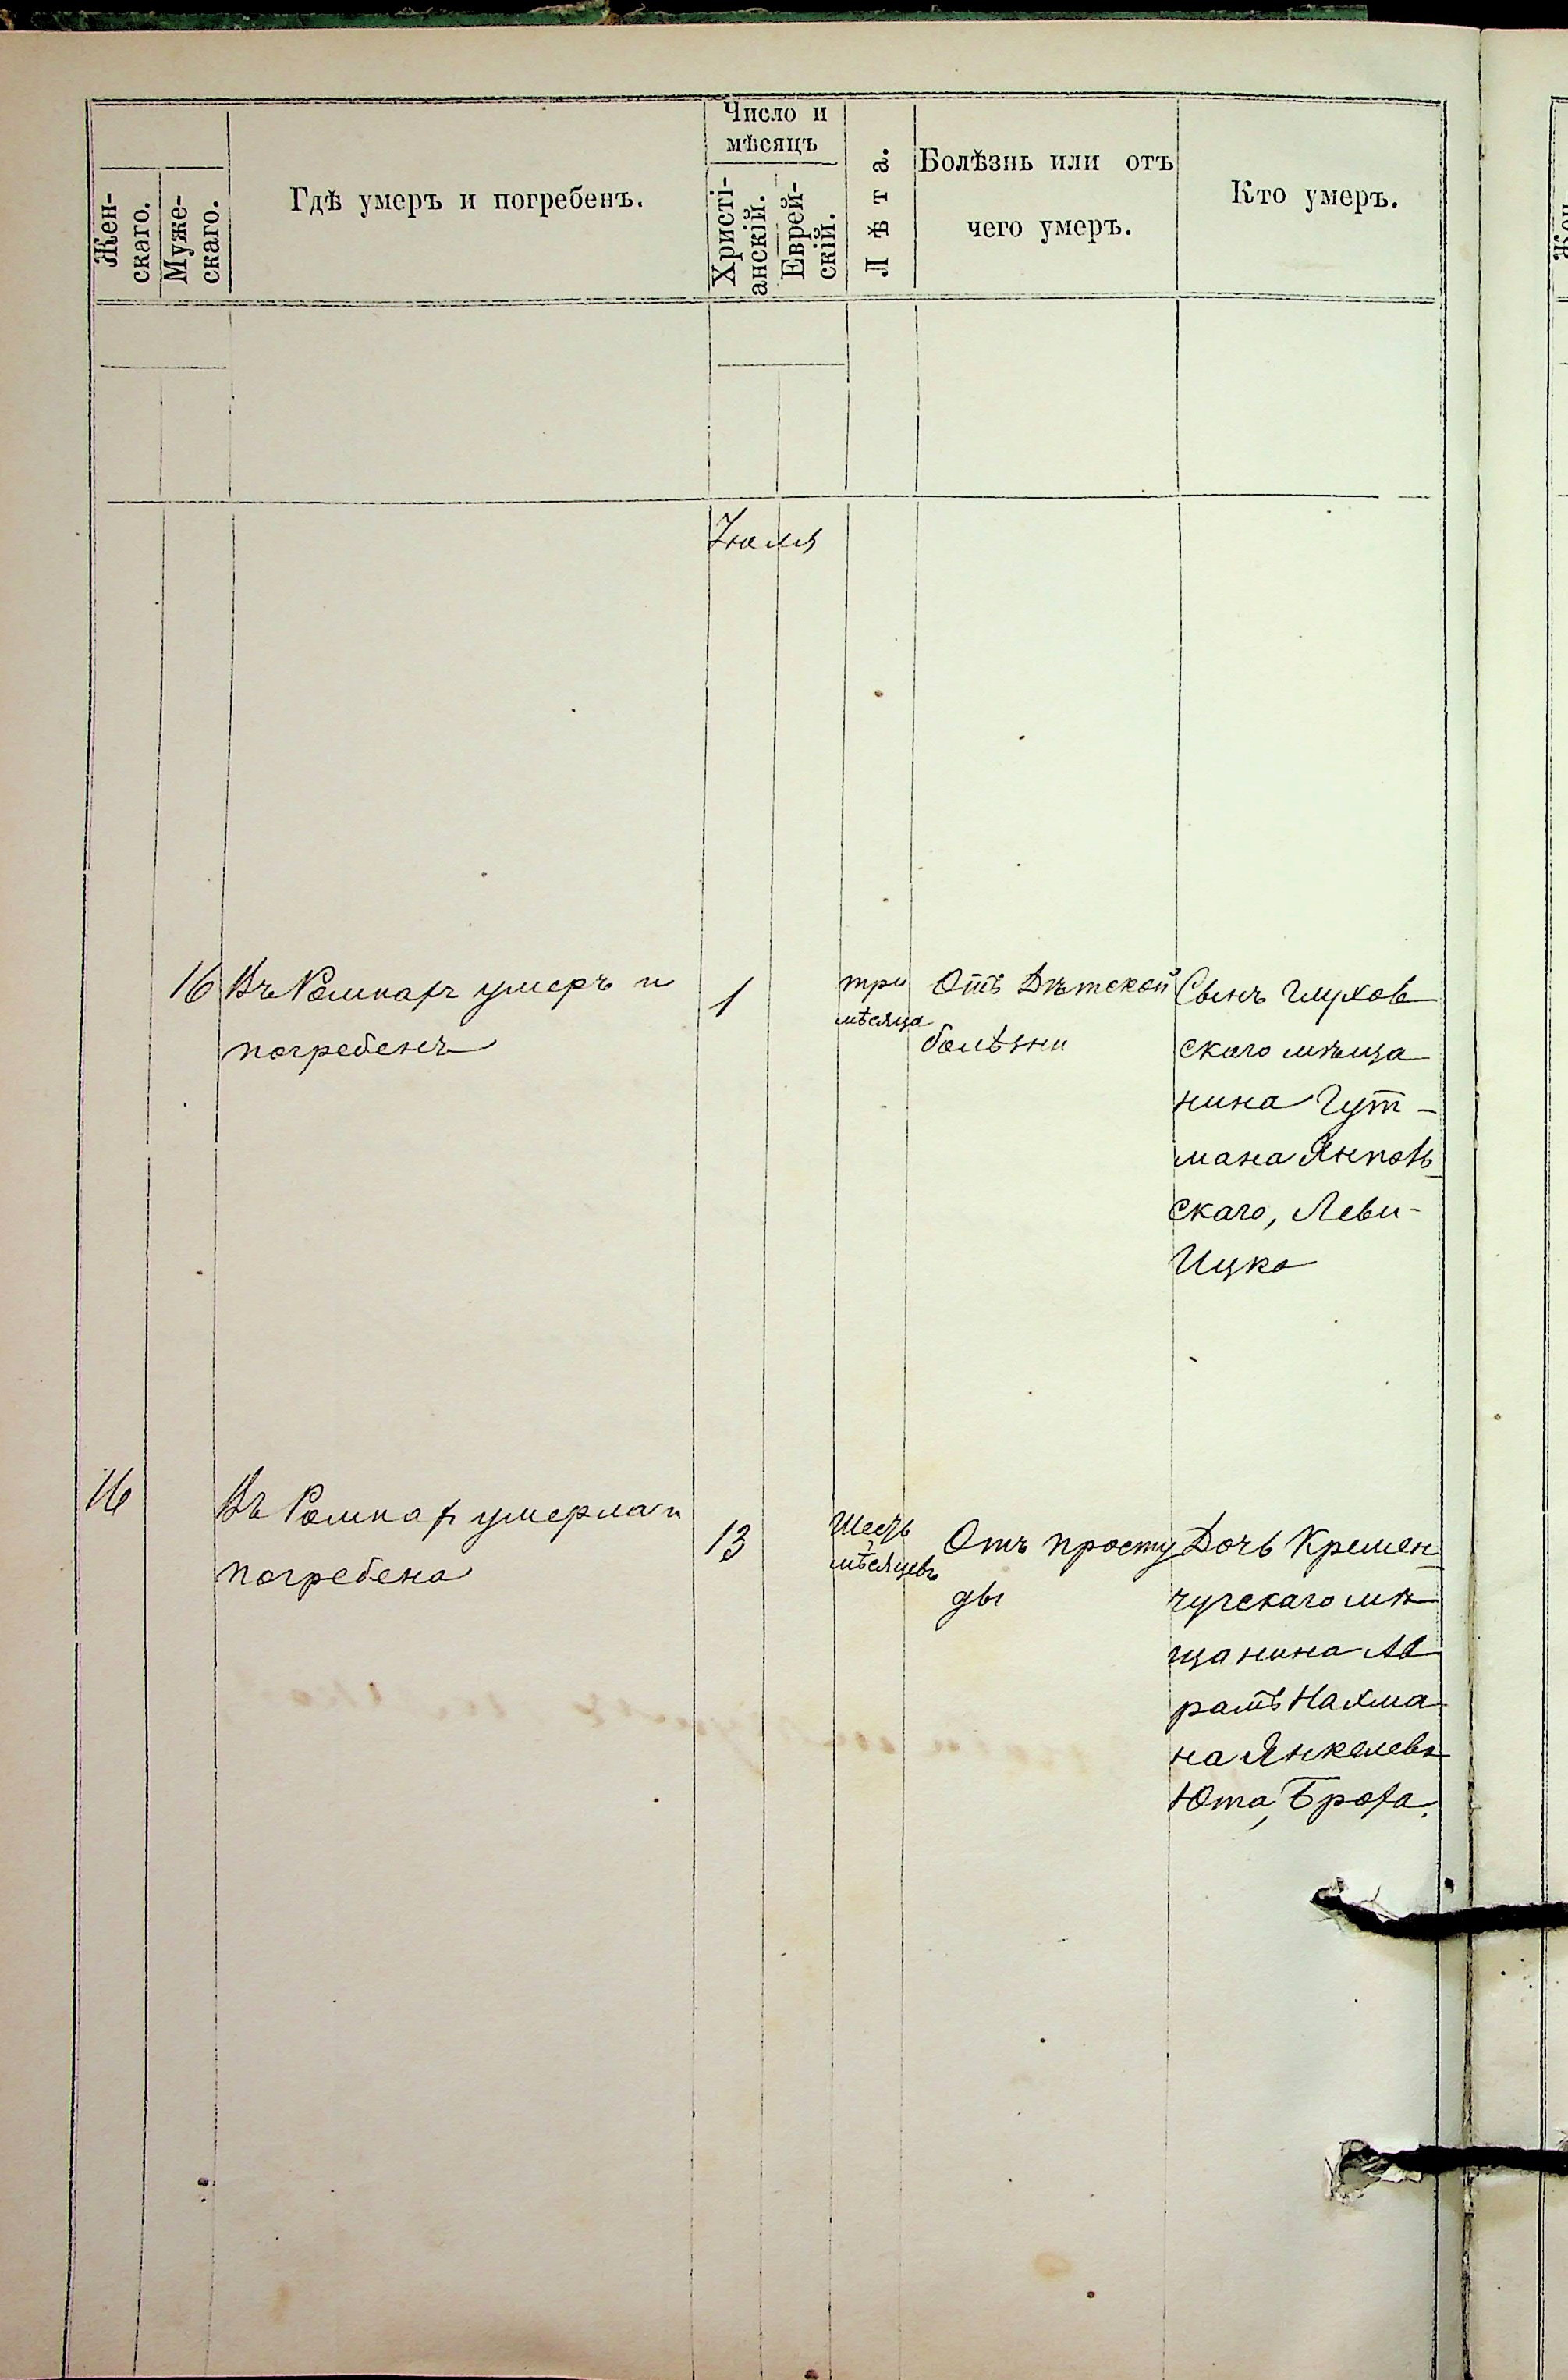 Жен-
скаго.
Муже-
скаго.
Гдѣ умеръ и погребенъ.
Число и
мѣсяцъ
Христі-
анскій.
Еврей-
скій.
Лѣта.
Болѣзнь или отъ
чего умеръ.
Кто умеръ.
Іюля
16 Въ Ромнахъ умеръ и
погребенъ
1
три
мѣсяца
Отъ Дѣтской
болѣзни
Сынъ Глухов
ского мѣща
нина Гут-
мана Янпов
скаго, Леви-
Ицко
16
Въ Ромнах умерла и
погребена
13
Шесть
мѣсяцевъ
Отъ просту
ды
Дочь Кремен
чугскаго мѣ
щанина Ав
рамъ Нахма
на Янкелева
Юта, Броха.